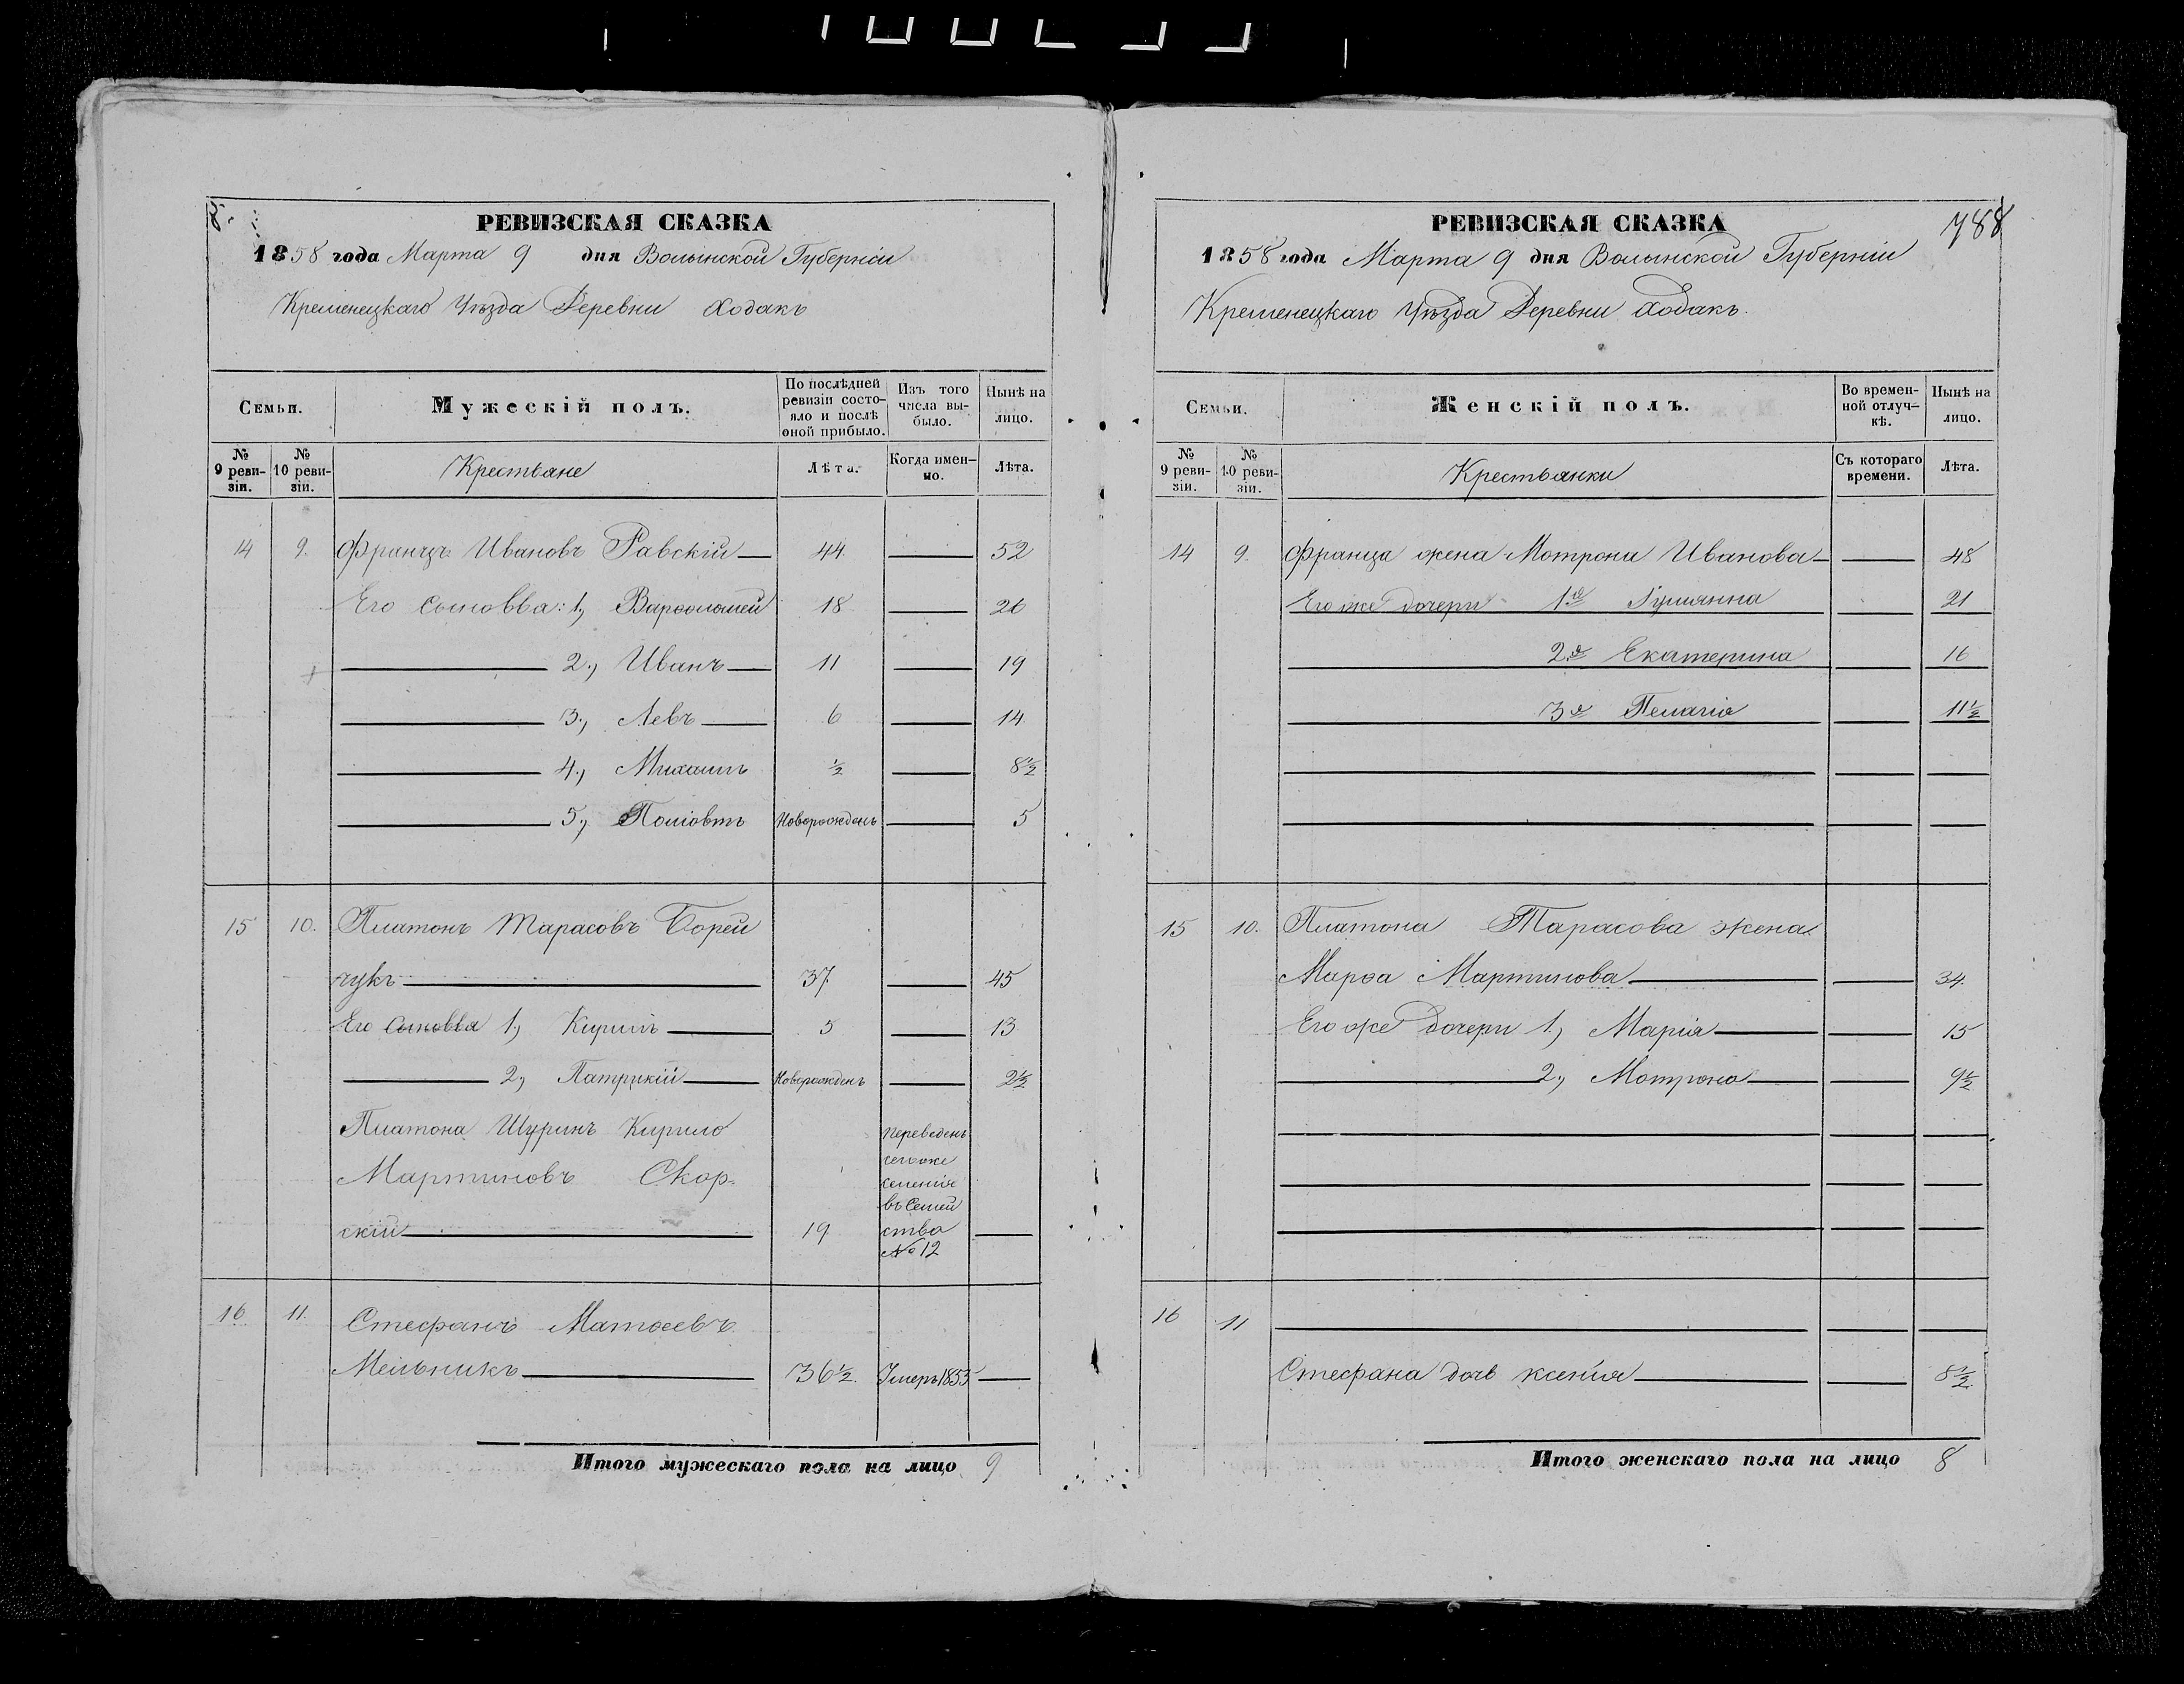 8.
РЕВИЗСКАЯ СКАЗКА
1858 года Марта 9 дня Волынской Губерніи
Кременецкаго Уѣзда Деревни Ходакъ
Семьи.
Мужескій полъ.
По послѣдней ревизіи состояло и послѣ оной прибыло.
Изъ того числа выбыло.
Нынѣ на лицо.
№ 9 ревизіи.
№ 10 ревизіи.
Крестьане
Лѣта.
Когда именно.
Лѣта.
14 9. Францъ Ивановъ Равскій 44. 52
Его сыновва: 1, Варѳоломей 18 26
2, Иванъ 11 19
3, Левъ 6 14
4, Михаилъ ½ 8½
5, Новорожденъ 5
15 10. Платонъ Тарасовъ Борей
чукъ 37. 45
Его сыновва 1, Кирилъ 5 13
2, Патрикій Новорожденъ 2½
Платона Шуринъ Кирило
Мартиновъ Скор-
скій 19.
переведенъ
сегоже
селенія
въ Семей
ства
№ 12
16 11. Стефанъ Матѳеевъ
Мельникъ 36½. Умеръ 1853
Итого мужескаго пола на лицо 9
788
РЕВИЗСКАЯ СКАЗКА
1858 года Марта 9 дня Волынской Губерніи
Кременецкаго Уѣзда Деревни Ходакъ.
Семьи.
Женскій полъ.
Во временной отлучкѣ.
Нынѣ на лицо.
№ 9 ревизіи.
№ 10 ревизіи.
Крестьянки
Съ котораго времени.
Лѣта.
14 9. Франца жена Мотрона Иванова 48
Его же дочери 1я 21
2я Екатерина 16
3я Пелагія 11½
15 10. Платона Тарасова жена
Марѳа Мартинова 34.
Его же дочери 1, Марія 15
2, Мотрона 9½
16 11
Стефана дочь ксенія 8½
Итого женскаго пола на лицо 8